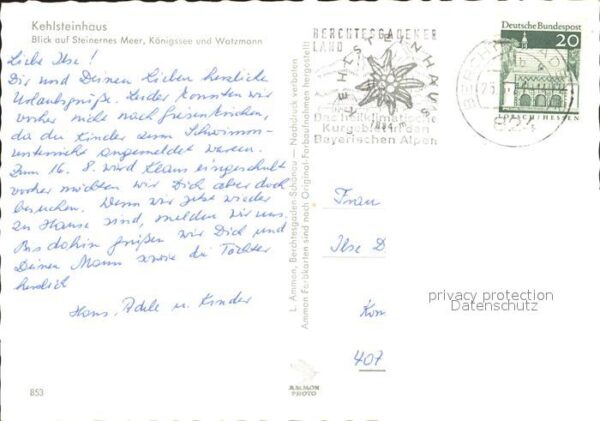 Kehlsteinhaus
Blick auf Steinernes Meer, Königssee und Watzmann
Liebe Ilse!
Dir und Deinen Lieben herzliche
Urlaubsgrüße. Leider konnten wir
vorher nicht nach
da die Kinder zum Schwimm-
unterricht angemeldet waren.
Zum 16. 8. wird Klaus eingeschult
vorher möchten wir Dich aber doch
besuchen. Wenn wir jetzt wieder
zu Hause sind, melden wir uns.
Bis dahin grüßen wir Dich und
Deinen Mann sowie die Töchter
herzlich
Hans, Adele u. Kinder
853
L. Ammon, Berchtesgaden-Schönau · Nachdruck verboten
Ammon Farbkarten sind nach Original-Farbaufnahmen hergestellt
AMMON
PHOTO
BERCHTESGADENER
LAND
KEHLSTEINHAUS
Das heilklimatische
Kurgebiet in den
Bayerischen Alpen
Deutsche Bundespost
20
LORSCH/HESSEN
Frau
Ilse D
407
privacy protection
OldThing.de